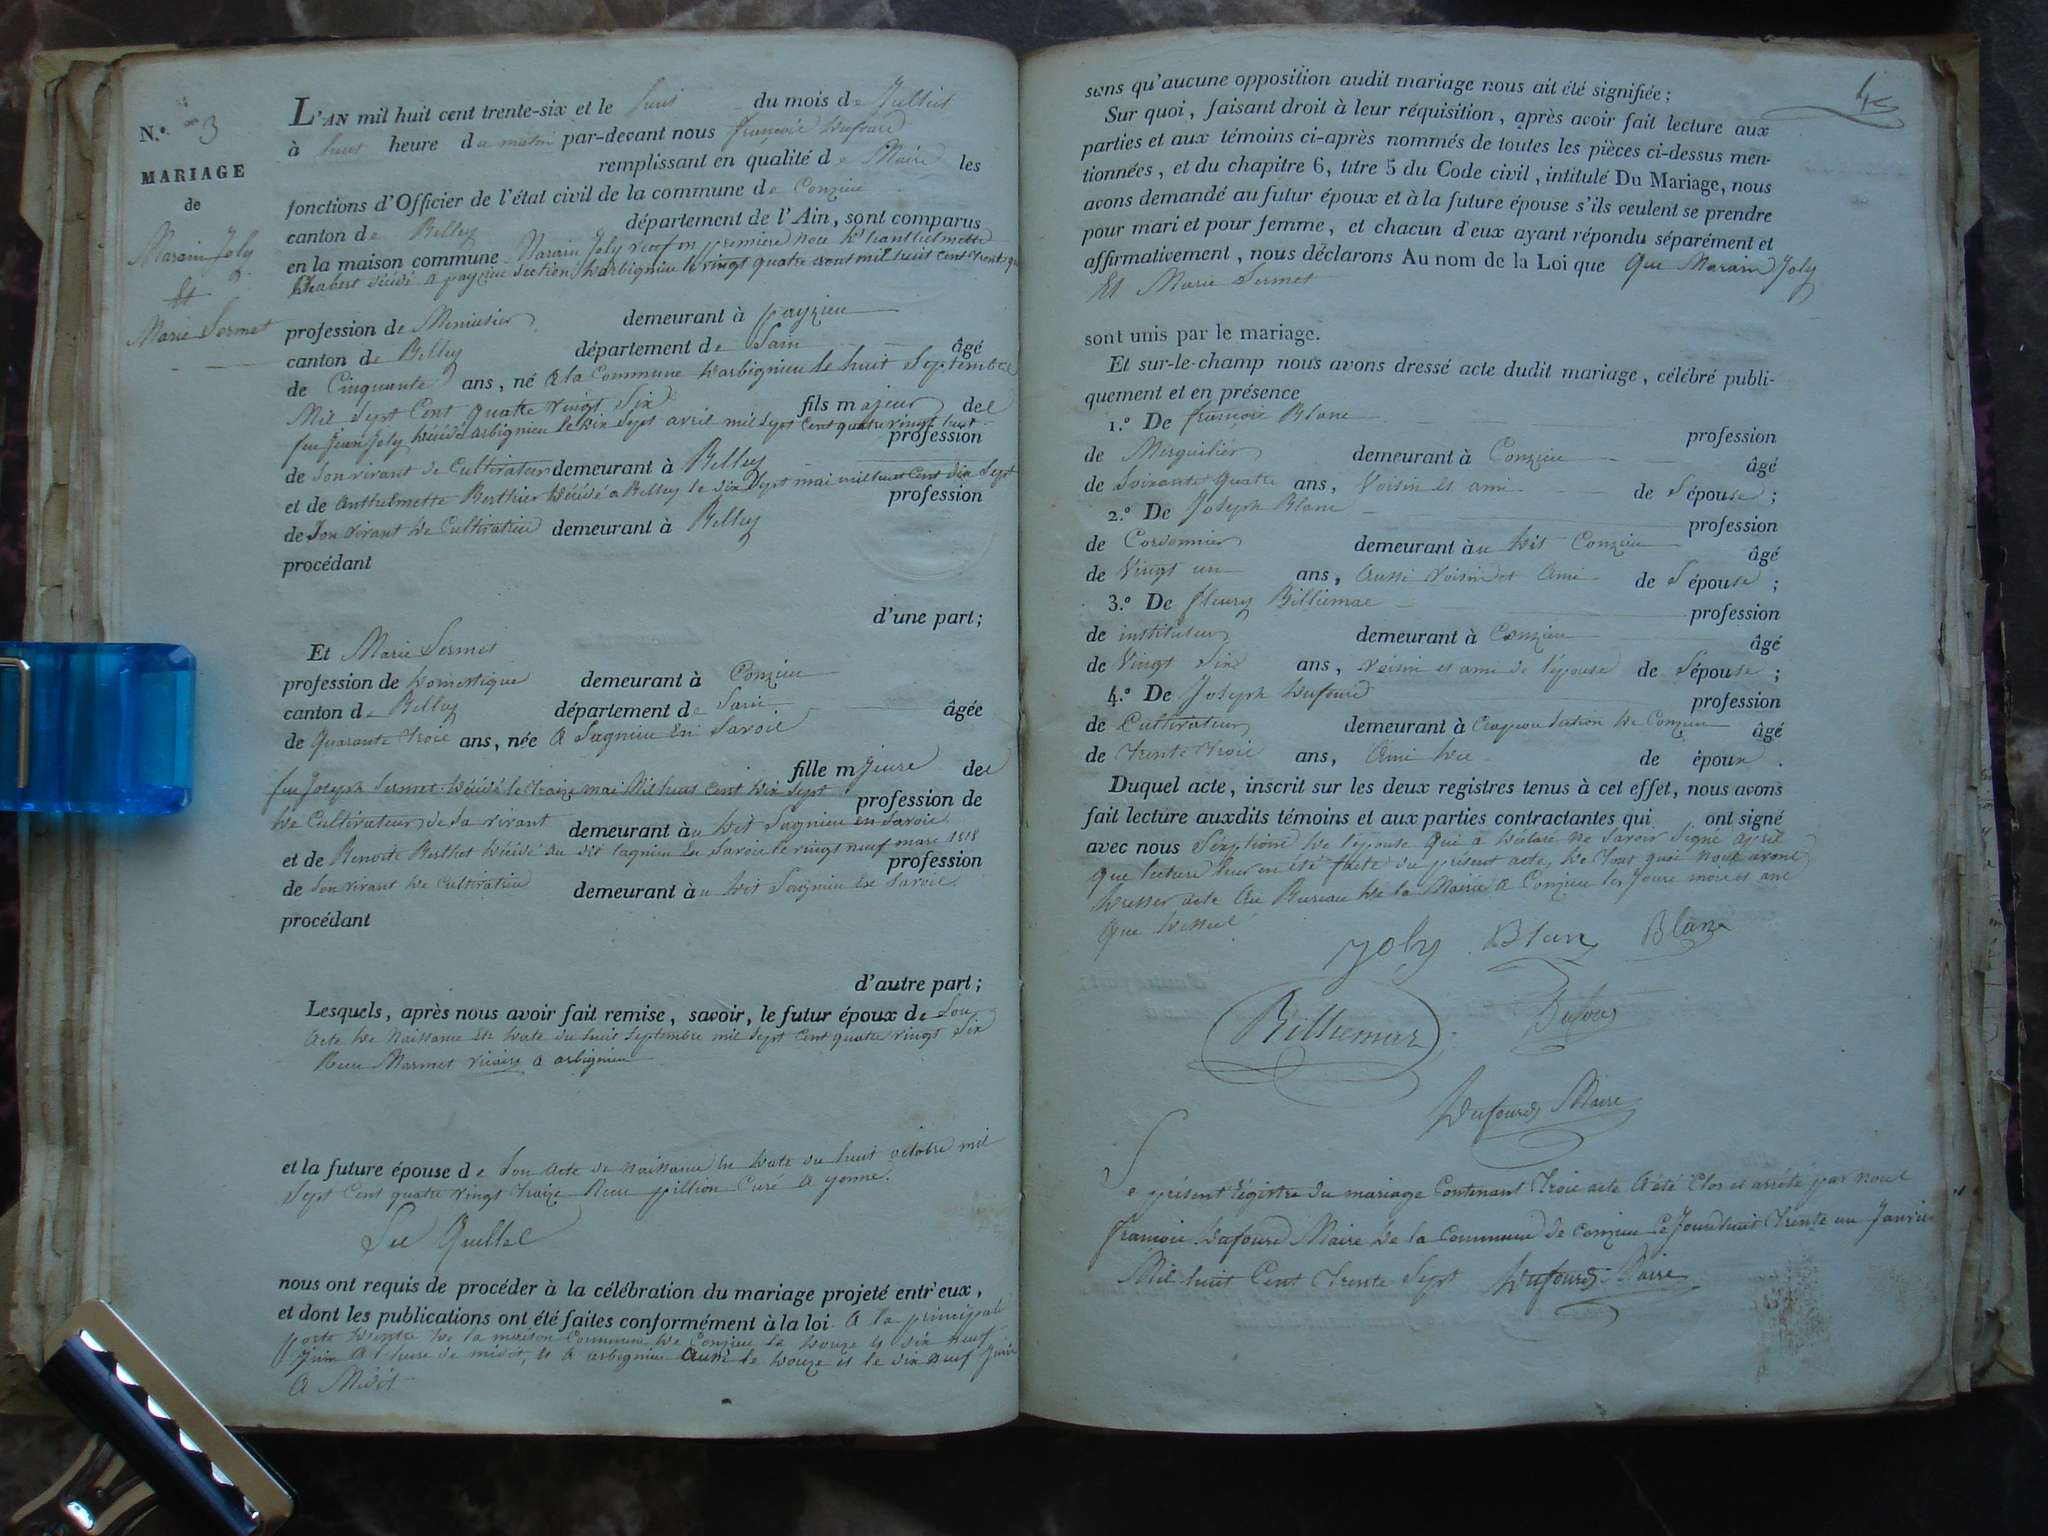 N.º 3
MARIAGE
de
Marain Joly
Et
Marie Sermet
L'AN mil huit cent trente-six et le huit du mois de Juilliet
à huit heure du matin par-devant nous françois Dufourd
remplissant en qualité de Maire les
fonctions d'Officier de l'état civil de la commune de Conzieu
canton de Belley département de l'Ain, sont comparus
en la maison commune Marain Joly veuf en premiere noce D'hanthelmette
décédé a payzieu Section D'arbignieu le vingt quatre aout mil huit cent trente
profession de Menuisier demeurant à payzieu
canton de Belley département de Lain âgé
de Cinquante ans, né a la Commune Darbignieu le huit Septembre
Mil Sept Cent quatre vingt Six fils majeur de
feu Jean Joly Décédé arbignieu le dix Sept avril mil Sept Cent quatre vingt huit
profession
de Son vivant de Cultivateur demeurant à Belley
et de Anthelmette Berthier Décédé a Belley le dix Sept mai mil huit Cent dix Sept
profession
de Son vivant de Cultivatrice demeurant à Belley
procédant
d'une part;
Et Marie Sermet
profession de Domestique demeurant à Conzieu
canton de Belley département de Lain âgée
de Quarante trois ans, née a Lagnieu En Savoie
fille majeure de
feu Joseph Sermet Décédé le treize mai Mil huit Cent dix Sept
profession de
de Cultivateur de Sa vivant demeurant au dit Lagnieu en Savoie
et de Benoite Berthet Décédé au dit lagnieu En Savoie le vingt neuf mars 1818
profession
de Son vivant de Cultivatrice demeurant au dit Lagnieu En Savoie
procédant
d'autre part;
Lesquels, après nous avoir fait remise, savoir, le futur époux de Son
Acte de Naissance En Date du huit Septembre mil Sept Cent quatre vingt Six
Reçu Marmet vicaire a arbignieu
et la future épouse de Son acte de naissance En Date du huit octobre mil
Sept Cent quatre vingt treize Reçu pillion Curé a yenne.
nous ont requis de procéder à la célébration du mariage projeté entr'eux,
et dont les publications ont été faites conformément à la loi A la principale
porte D'entré de la maison Commune de Conzieu le Douze et dix neuf
Juin a l'heure de midit, et a arbignieu aussi le Douze et le dix neuf Juin
a Midit
4
sans qu'aucune opposition audit mariage nous ait été signifiée;
Sur quoi, faisant droit à leur réquisition, après avoir fait lecture aux
parties et aux témoins ci-après nommés de toutes les pièces ci-dessus men-
tionnées, et du chapitre 6, titre 5 du Code civil, intitulé Du Mariage, nous
avons demandé au futur époux et à la future épouse s'ils veulent se prendre
pour mari et pour femme, et chacun d'eux ayant répondu séparément et
affirmativement, nous déclarons Au nom de la Loi que Que Marain Joly
Et Marie Sermet
sont unis par le mariage.
Et sur-le-champ nous avons dressé acte dudit mariage, célébré publi-
quement et en présence
1.º De françois Blanc
profession
de demeurant à Conzieu
âgé
de Soixante quatre ans, Voisin et ami de l'épouse;
2.º De Joseph Blanc
profession
de Cordonnier demeurant au Dit Conzieu
âgé
de Vingt un ans, Aussi voisin et Ami de l'épouse;
3.º De fleury Billiemaz
profession
de instituteur demeurant à Conzieu
âgé
de Vingt Six ans, voisin et ami de l'épouse de l'épouse;
4.º De Joseph Dufourd
profession
de Cultivateur demeurant à Crapou Section de Conzieu
âgé
de trente trois ans, Ami de époux.
Duquel acte, inscrit sur les deux registres tenus à cet effet, nous avons
fait lecture auxdits témoins et aux parties contractantes qui ont signé
avec nous de l'épouse Qui a Déclaré ne Savoir Signé après
que lecture leur en été faite du présent acte, de tout quoi nous avons
Dresser acte Au Bureau de la Mairie a Conzieu les Jours mois et an
Que Dessus
Joly Blanc Blanc
Billiemaz Dufour
Dufourd Maire
Le présent Régistre du mariage Contenant trois acte A été Clos et arrété par nous
François Dufourd Maire de la Commune de Conzieu Ce Jourdhuit trente un Janvier
Mil huit Cent trente Sept Dufourd Maire